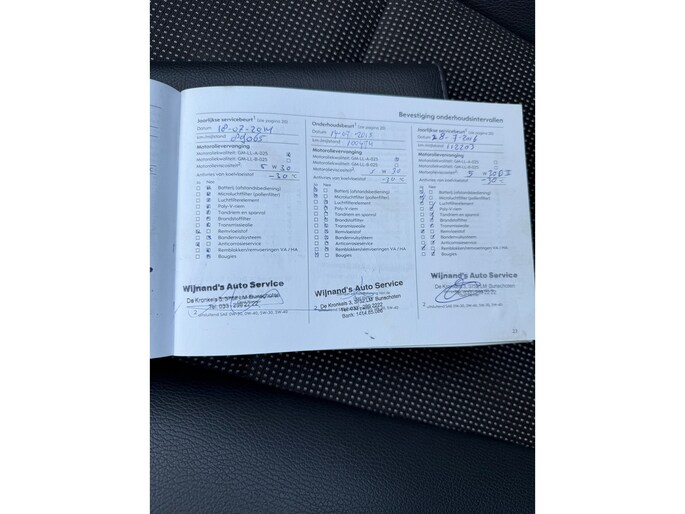 Bevestiging onderhoudsintervallen
Jaarlijkse servicebeurt¹ (zie pagina 20)
Datum: 18-07-2014
km-(mijl)stand:
Motorolieverversing
Motoroliekwaliteit GM-LL-A-025
Motoroliekwaliteit GM-LL-B-025
Motorolieviscositeit²: 5 W 30
Antivries van koelvloeistof: -30 C
Ja Nee
Batterij (afstandsbediening)
Microluchtfilter (pollenfilter)
Luchtfilterelement
Poly V-riem
Tandriem en spanrol
Brandstoffilter
Transmissieolie
Remvloeistof
Bandenvulsysteem
Anticorrosieservice
Remblokken/remvoeringen VA / HA
Bougies
Wijnand's Auto Service
De Kronkels 3, 3752 LM Bunschoten
Tel. 033 - 299 2222
Onderhoudsbeurt¹ (zie pagina 20)
Datum:
km-(mijl)stand:
Motorolieverversing
Motoroliekwaliteit GM-LL-A-025
Motoroliekwaliteit GM-LL-B-025
Motorolieviscositeit²: 5 W 30
Antivries van koelvloeistof: -30 C
Ja Nee
Batterij (afstandsbediening)
Microluchtfilter (pollenfilter)
Luchtfilterelement
Poly V-riem
Tandriem en spanrol
Brandstoffilter
Transmissieolie
Remvloeistof
Bandenvulsysteem
Anticorrosieservice
Remblokken/remvoeringen VA / HA
Bougies
Wijnand's Auto Service
De Kronkels 3, 3752 LM Bunschoten
Tel. 033 - 299 2222
Jaarlijkse servicebeurt¹ (zie pagina 20)
Datum: 28-7-2016
km-(mijl)stand: 112203
Motorolieverversing
Motoroliekwaliteit GM-LL-A-025
Motoroliekwaliteit GM-LL-B-025
Motorolieviscositeit²:
Antivries van koelvloeistof: -30 C
Ja Nee
Batterij (afstandsbediening)
Microluchtfilter (pollenfilter)
Luchtfilterelement
Poly V-riem
Tandriem en spanrol
Brandstoffilter
Transmissieolie
Remvloeistof
Bandenvulsysteem
Anticorrosieservice
Remblokken/remvoeringen VA / HA
Bougies
Wijnand's Auto Service
De Kronkels 3, 3752 LM Bunschoten